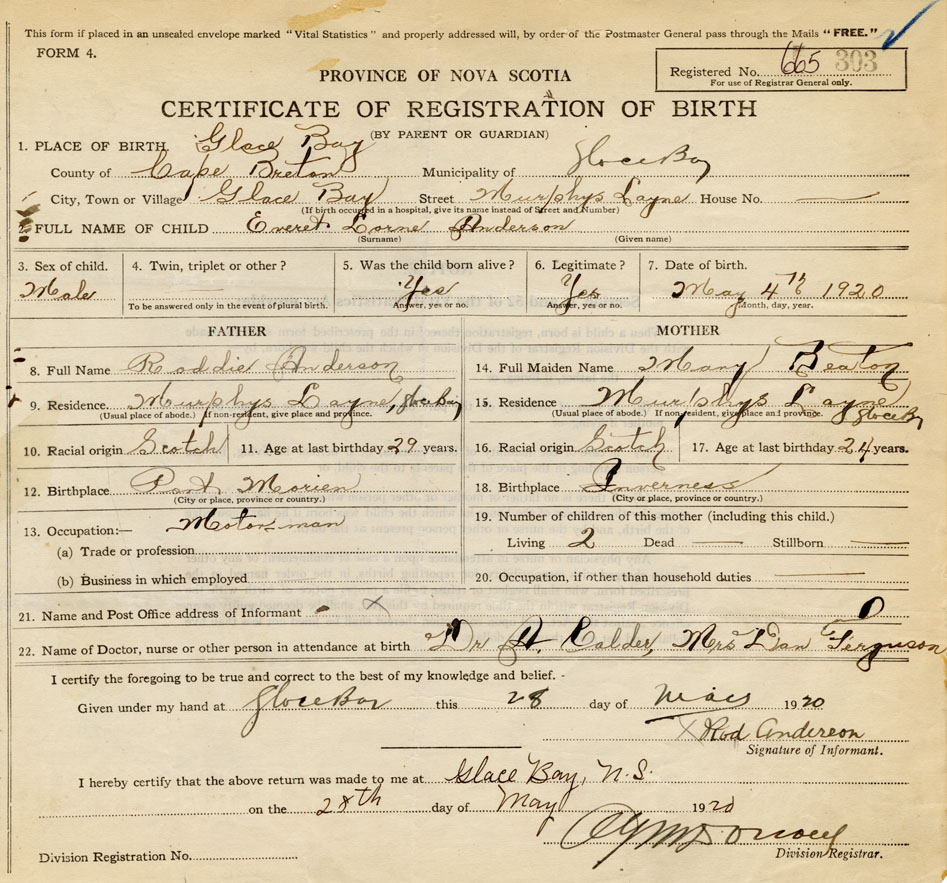 This form if placed in an unsealed envelope marked "Vital Statistics" and properly addressed will, by order of the Postmaster General pass through the Mails "FREE."
FORM 4.
Registered No. 665 303
For use of Registrar General only.
PROVINCE OF NOVA SCOTIA
CERTIFICATE OF REGISTRATION OF BIRTH
(BY PARENT OR GUARDIAN)
1. PLACE OF BIRTH Glace Bay
County of Cape Breton Municipality of Glace Bay
City, Town or Village Glace Bay Street Murphys Layne House No. —
(If birth occurred in a hospital, give its name instead of Street and Number)
2. FULL NAME OF CHILD Everet Lorne Anderson
(Surname) (Given name)
3. Sex of child. 4. Twin, triplet or other? 5. Was the child born alive? 6. Legitimate? 7. Date of birth.
Male — Yes Yes May 4th 1920
To be answered only in the event of plural birth. Answer, yes or no. Answer, yes or no. Month, day, year.
FATHER
8. Full Name Roddie Anderson
9. Residence Murphys Layne, Glace Bay
(Usual place of abode.) If non-resident, give place and province.
10. Racial origin Scotch 11. Age at last birthday 29 years.
12. Birthplace Port Morien
(City or place, province or country.)
13. Occupation:— Motorman
(a) Trade or profession
(b) Business in which employed
MOTHER
14. Full Maiden Name Mary Beaton
15. Residence Murphys Layne Glace Bay
(Usual place of abode.) If non-resident, give place and province.
16. Racial origin Scotch 17. Age at last birthday 24 years.
18. Birthplace Inverness
(City or place, province or country.)
19. Number of children of this mother (including this child.)
Living 2 Dead — Stillborn —
20. Occupation, if other than household duties —
21. Name and Post Office address of Informant x
22. Name of Doctor, nurse or other person in attendance at birth Dr A. Calder, Mrs Dan Ferguson
I certify the foregoing to be true and correct to the best of my knowledge and belief.
Given under my hand at Glace Bay this 28 day of 1920
X Rod Anderson
Signature of Informant.
I hereby certify that the above return was made to me at Glace Bay, N.S.
on the 28th day of May 1920
Division Registration No. Division Registrar.